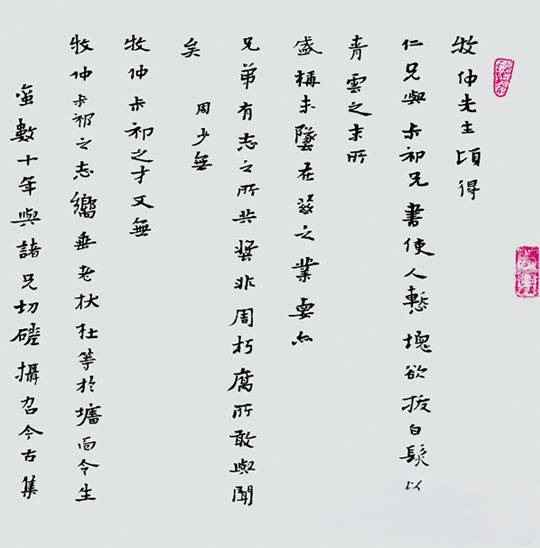 牧仲先生頃得
仁兄與卞祁兄書使人慙愧欲拔白鬚以
青雲之末所
盛稱未墜在茲之業要
兄弟有志之所共奬非周朽腐所敢與聞
矣 周少無
牧仲卞祁之才又無
牧仲卞祁之志嚮垂老杕杜等於墻面令生
蚤數十年與諸兄切磋攝召今古集